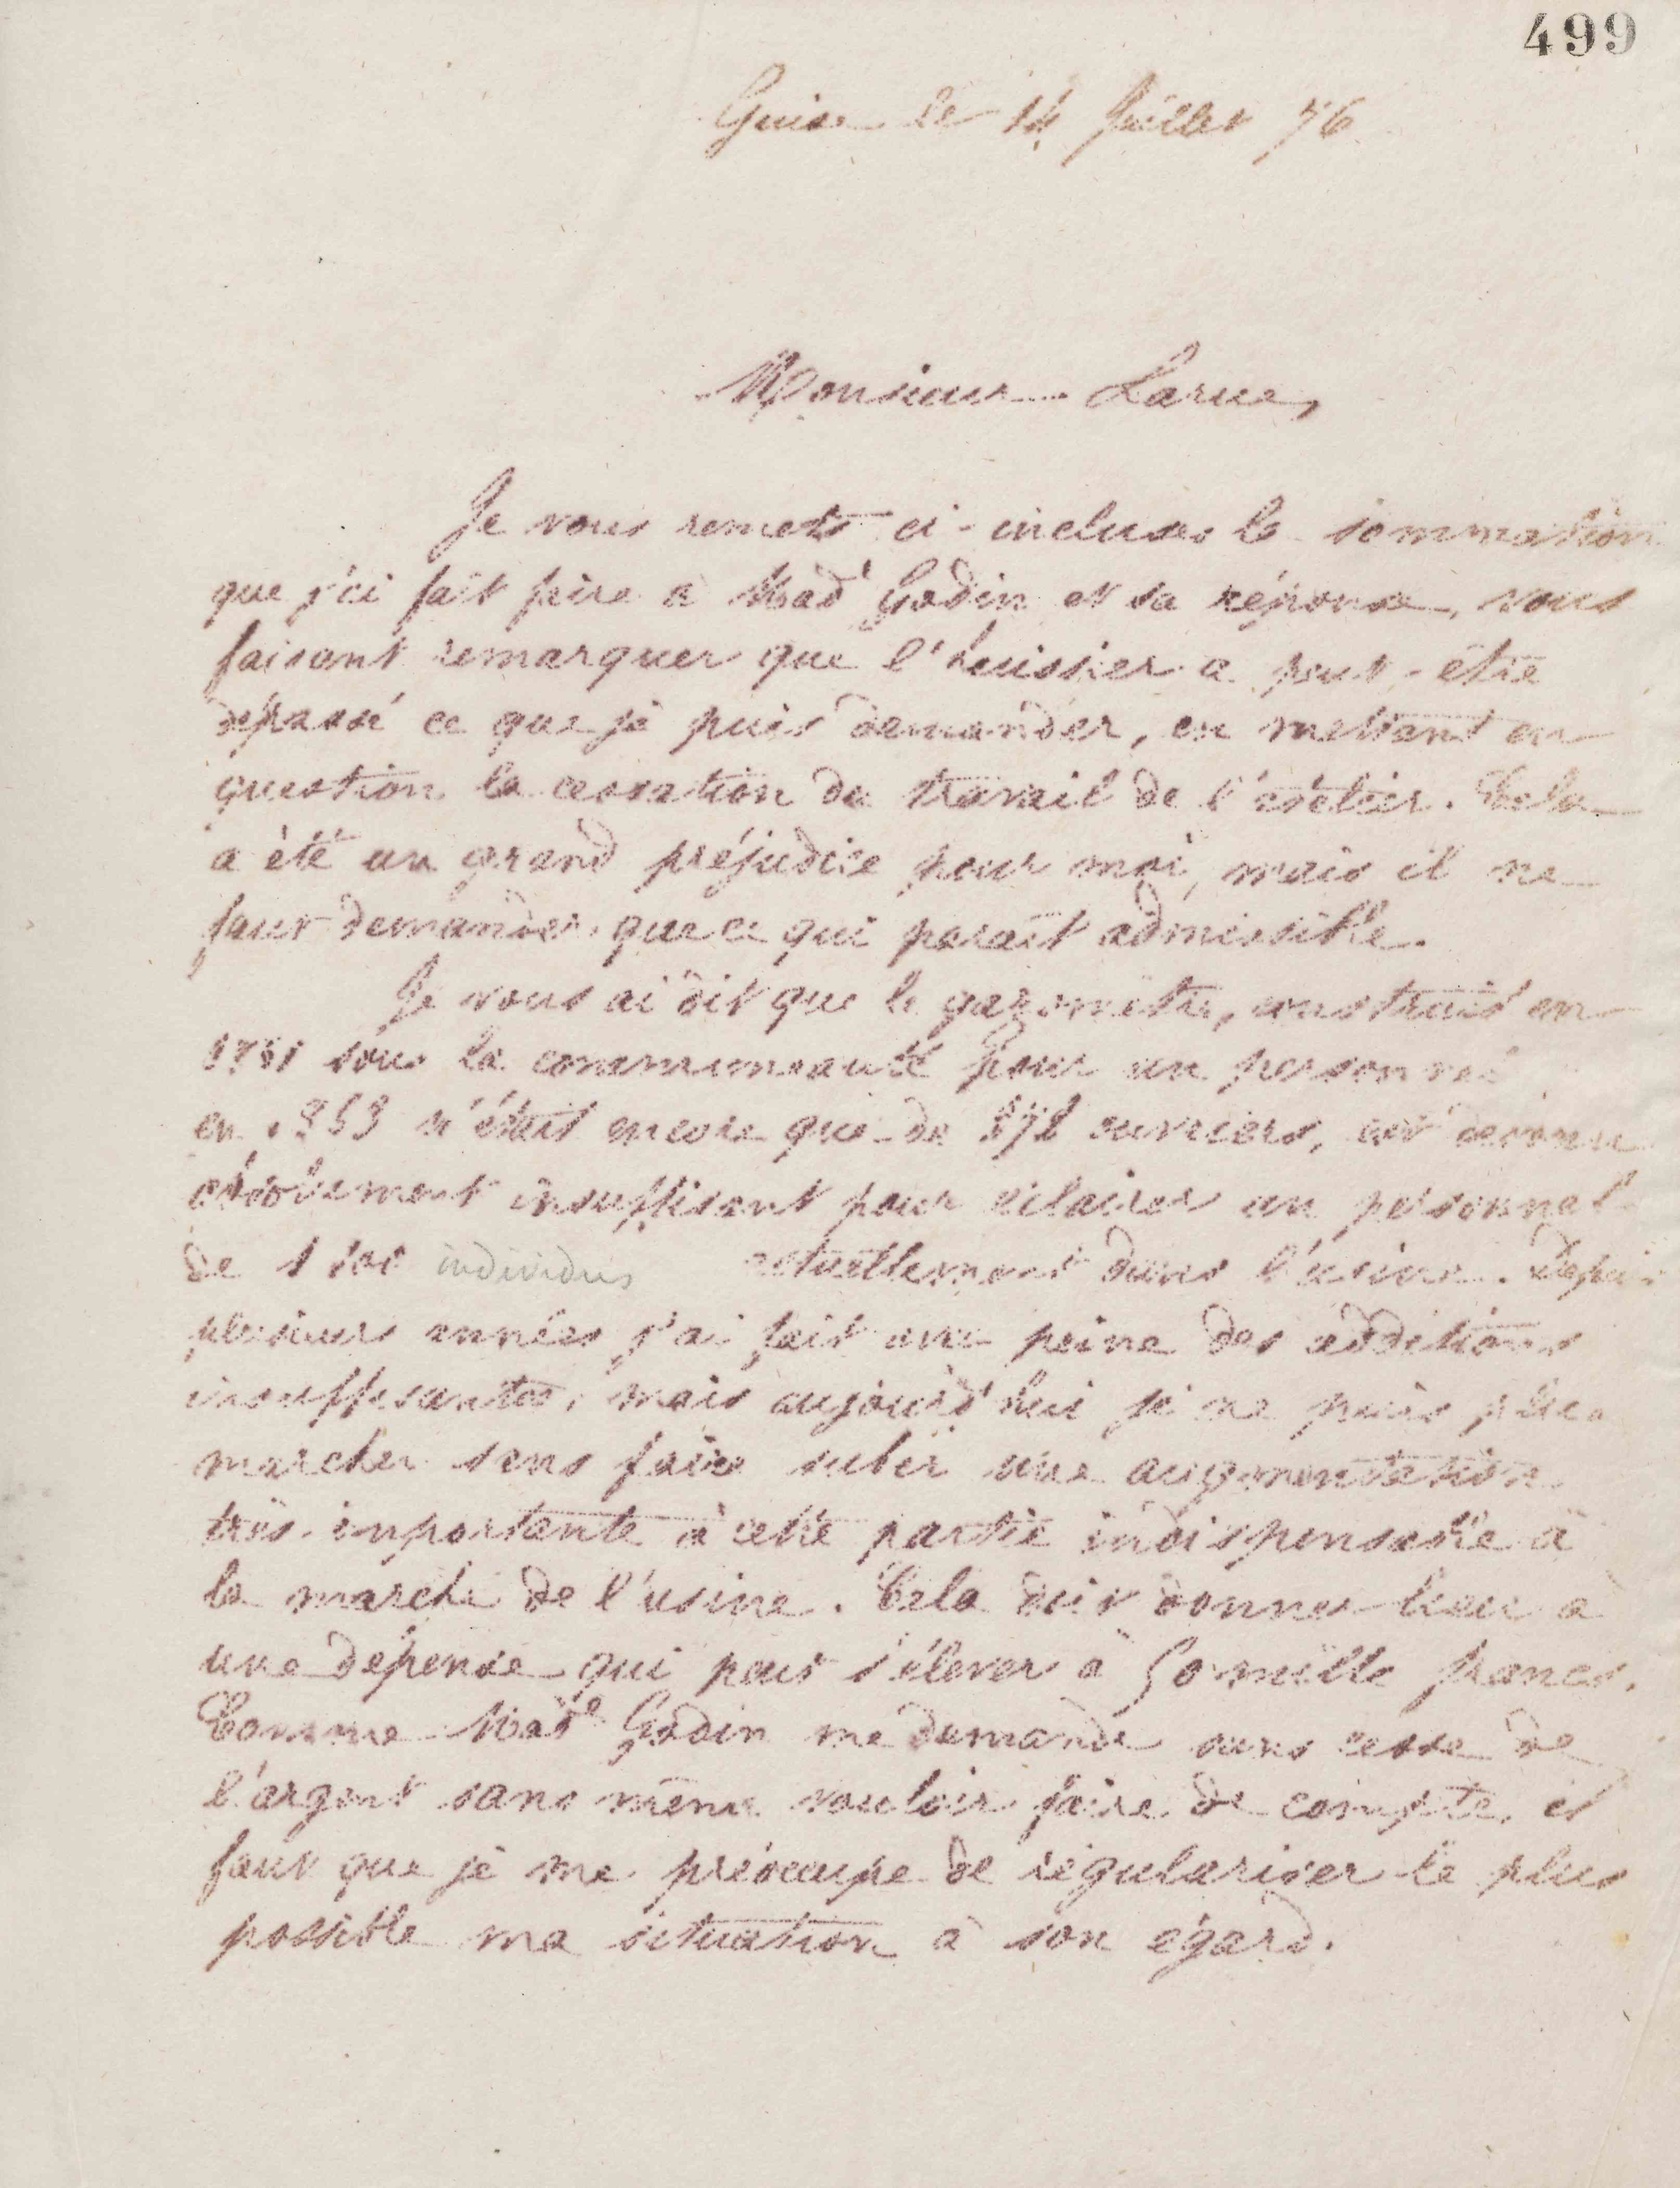 499
Guise le 14 Juillet 76
Monsieur Larue,
Je vous remets ci-incluses la sommation
que j'ai fait faire à Mad^e Godin et sa réponse, vous
faisant remarquer que l'huissier a peut-être
dépassé ce que je puis demander, en mettant en
question la cessation du travail de l'atelier. Cela
a été un grand préjudice pour moi, mais il ne
faut demander que ce qui parait admissible.
Je vous ai dit que le gazomètre, construit en
sous la communauté pour un personnel
en 1853 n'était encore que de ouvriers, est devenu
absolument insuffisant pour éclairer un personnel
de individus actuellement dans l'usine. Depuis
plusieurs années j'ai fait avec peine des additions
insuffisantes, mais aujourd'hui je ne puis plus
marcher sans faire subir une augmentation
très importante à cette partie indispensable à
la marche de l'usine. Cela doit donner lieu à
une dépense qui peut s'élever à 50 mille francs.
Comme Mad^e Godin me demande sans cesse de
l'argent sans même vouloir faire de compte, il
faut que je me préoccupe de régulariser le plus
possible ma situation à son égard.